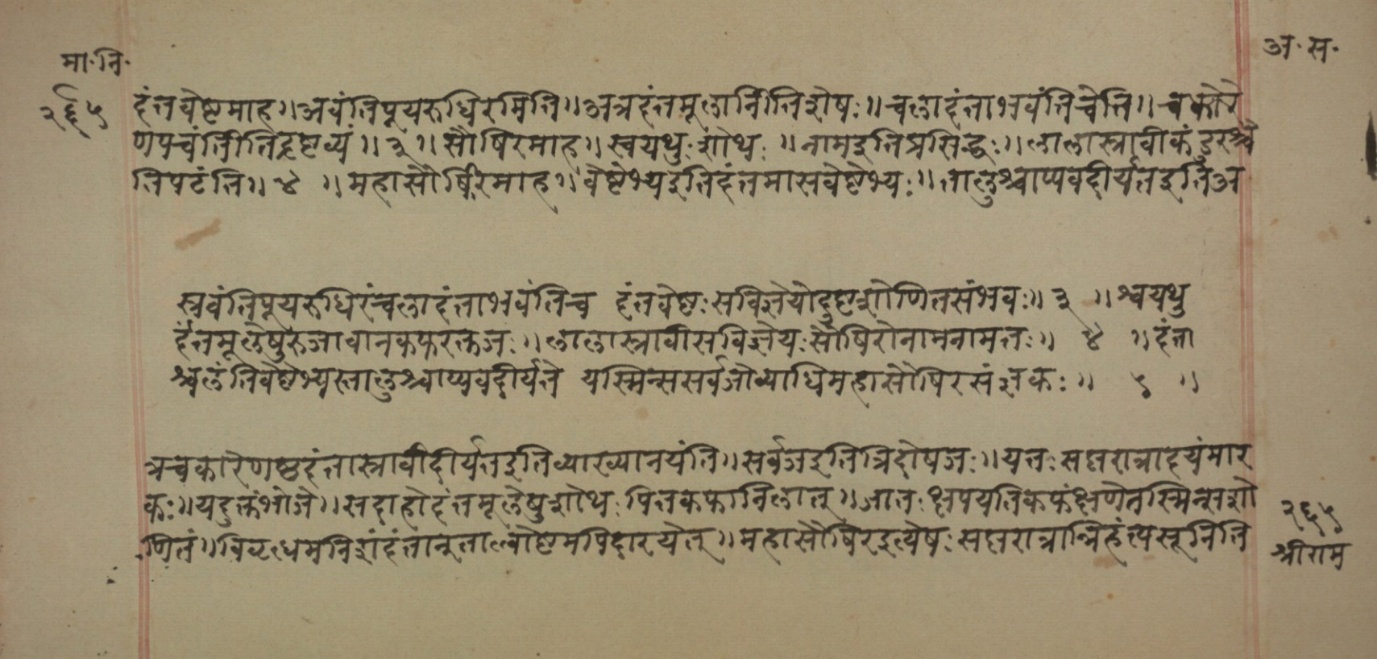 मा॰ नि॰
अ॰ स॰
२६५
दंतवेष्टमाह॥ अवंतिपूयरुधिरमिति॥ अत्रदंतमूलानीतिशेषः॥ चलादंताभवंतिचेति॥ चकारे
णपचंतीतिद्रष्टव्यं॥ ३॥ सौषिरमाह॥ स्वयथुः शोथः॥ नामइतिप्रसिद्धः॥ लालास्त्रावीकंडुरश्चे
तिपटंति॥ ४॥ महासौषिरमाह॥ वेष्टेभ्यइतिदंतमासवेष्टेभ्यः॥ तालुश्चाप्यवदीर्यतइतिअ
स्त्रवंतिपूयरुधिरंचलादंताभवंतिच दंतवेष्टः सविज्ञेयोदुष्टशोणितसंभवः॥ ३॥ श्वयथु
र्दंतमूलेषुरुजावानकफरक्तजः॥ लालास्त्रावीसविज्ञेयः सौषिरोनामनामतः॥ ४॥ दंता
श्चलंतिवेष्टेभ्यस्तालुश्चाप्यवदीर्यते यस्मिन्ससर्वजोव्याधिमहासौषिरसंज्ञकः॥ ५॥
त्रचकारेणष्ठदंतास्त्रावीदीर्यतइतिव्याख्यानयंति॥ सर्वजइतित्रिदोषजः॥ यतः सप्तरात्रादयंमार
कः॥ यदुक्तंभोजे॥ सदाहोदंतमूलेषुशोथः पित्तकफानिलात्॥ जातः क्षपयतिकफंक्षणेतस्मिन्सशो
णितं॥ दंतान्ताल्वोष्टमपिदारयेत्॥ महासौषिरइत्येषः सप्तरात्रान्निहंत्यसूनिति
२६५
श्रीराम